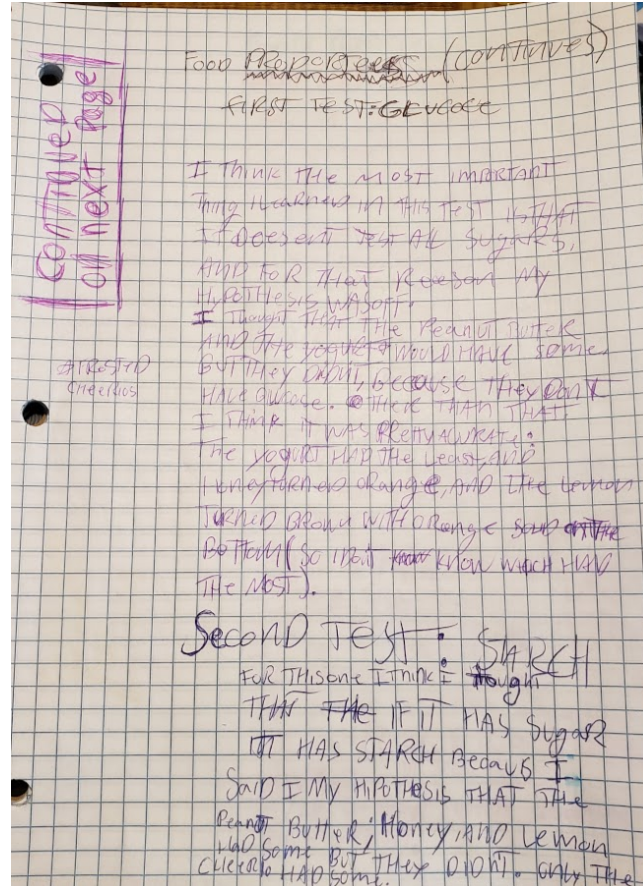 Food PROPORTEESS (CONTINUES)
FIRST TEST: GLUCOSE
CONTINUED
on next page
I THINK THE MOST IMPORTANT
Thing I LEARNED IN THIS TEST IS THAT
IT DOESENT TEST ALL SUGARS,
AND FOR THAT REESON MY
HIPOTHESIS WAS OFF.
I THOUGHT THAT THE PEANUT BUTTER
AND THE YOGURT WOULD HAVE SOME
BUT THEY DIDNT, BECAUSE THEY DON'T
HAVE GLUCOSE. OTHER THAN THAT
I THINK IT WAS PRETTY
The yogurt HAD THE LEAST, AND
Honey TURNED ORANGE, AND THE LEMON
TURNED BROWN WITH ORANGE ON THE
BOTTOM (SO I DON'T KNOW WHICH HAD
THE MOST).
FROSTED
CHEERIOS
SECOND TEST: STARCH
FOR THIS ONE I THINK I thought
THAT THE IF IT HAS SUGAR
IT HAS STARCH BECAUS I
SAID I MY HIPOTHESIS THAT THE
PEANUT BUTTER, HONEY, AND LEMON
HAD SOME BUT THEY DIDNT. ONLY THE
CHEERIO HAD SOME.